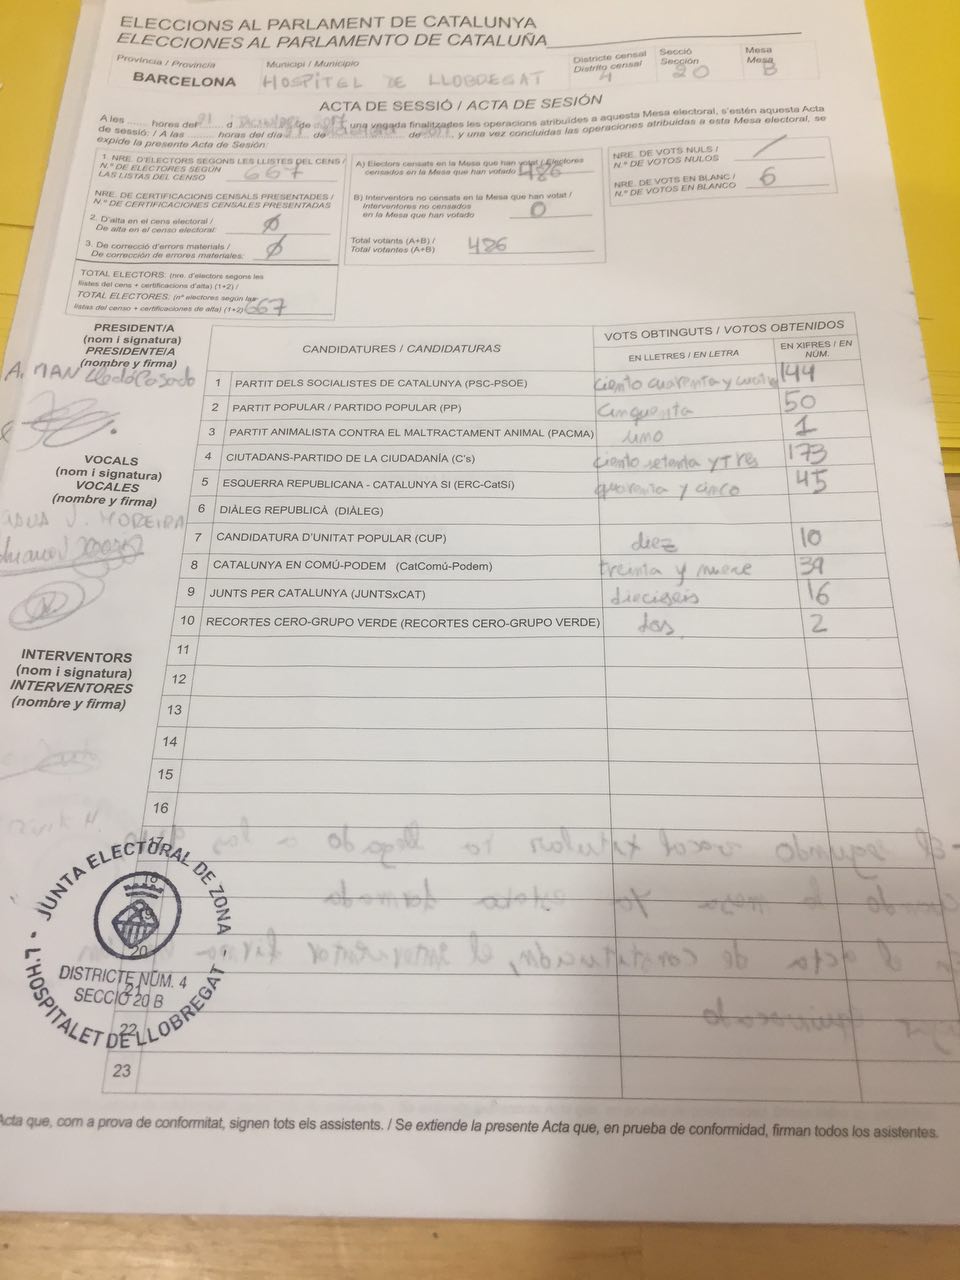 ELECCIONS AL PARLAMENT DE CATALUNYA
ELECCIONES AL PARLAMENTO DE CATALUÑA
Provincia / Província
BARCELONA
Municipi / Municipio
HOSPITEL DE LLOBREGAT
Districte censal
Distrito censal
4
Secció
Sección
20
Mesa
Mesa
B
ACTA DE SESSIÓ / ACTA DE SESIÓN
A les ....... hores del 21 d de una vegada finalitzades les operacions atribuïdes a aquesta Mesa electoral, s'estén aquesta Acta
de sessió: / A las ....... horas del día de de y una vez concluidas las operaciones atribuidas a esta Mesa electoral, se
expide la presente Acta de Sesión:
1. NRE. D'ELECTORS SEGONS LES LLISTES DEL CENS /
N.º DE ELECTORES SEGÚN
LAS LISTAS DEL CENSO
667
NRE. DE CERTIFICACIONS CENSALS PRESENTADES /
N.º DE CERTIFICACIONES CENSALES PRESENTADAS
2. D'alta en el cens electoral /
De alta en el censo electoral:
Ø
3. De correcció d'errors materials /
De corrección de errores materiales:
Ø
TOTAL ELECTORS: (nre. d'electors segons les
llistes del cens + certificacions d'alta) (1+2) /
TOTAL ELECTORES: (nº electores según las
listas del censo + certificaciones de alta) (1+2)
667
A) Electors censats en la Mesa que han votat / Electores
censados en la Mesa que han votado
486
B) Interventors no censats en la Mesa que han votat /
Interventores no censados
en la Mesa que han votado
0
Total votants (A+B) /
Total votantes (A+B)
486
NRE. DE VOTS NULS /
N.º DE VOTOS NULOS
/
NRE. DE VOTS EN BLANC /
N.º DE VOTOS EN BLANCO
6
PRESIDENT/A
(nom i signatura)
PRESIDENTE/A
(nombre y firma)
VOCALS
(nom i signatura)
VOCALES
(nombre y firma)
J. MOREIRA
INTERVENTORS
(nom i signatura)
INTERVENTORES
(nombre y firma)
CANDIDATURES / CANDIDATURAS
VOTS OBTINGUTS / VOTOS OBTENIDOS
EN LLETRES / EN LETRA
EN XIFRES / EN NÚM.
1 PARTIT DELS SOCIALISTES DE CATALUNYA (PSC-PSOE) ciento cuarenta y cuatro 144
2 PARTIT POPULAR / PARTIDO POPULAR (PP) cinquenta 50
3 PARTIT ANIMALISTA CONTRA EL MALTRACTAMENT ANIMAL (PACMA) uno 1
4 CIUTADANS-PARTIDO DE LA CIUDADANÍA (C's) ciento setenta y Tres 173
5 ESQUERRA REPUBLICANA - CATALUNYA SI (ERC-CatSí) quarenta y cinco 45
6 DIÀLEG REPUBLICÀ (DIÀLEG)
7 CANDIDATURA D'UNITAT POPULAR (CUP) diez 10
8 CATALUNYA EN COMÚ-PODEM (CatComú-Podem) treinta y nueve 39
9 JUNTS PER CATALUNYA (JUNTSxCAT) dieciseis 16
10 RECORTES CERO-GRUPO VERDE (RECORTES CERO-GRUPO VERDE) dos 2
11
12
13
14
15
16
17
18
19
20
21
22
23
JUNTA ELECTORAL DE ZONA
DISTRICTE NÚM. 4
SECCIÓ 20 B
L'HOSPITALET DE LLOBREGAT
Acta que, com a prova de conformitat, signen tots els assistents. / Se extiende la presente Acta que, en prueba de conformidad, firman todos los asistentes.